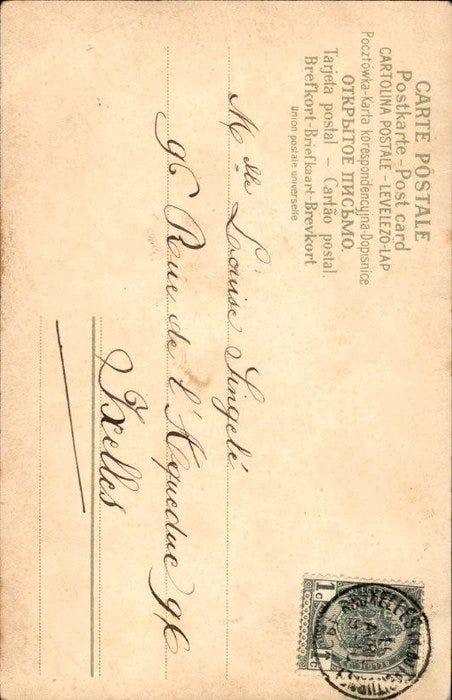 CARTE POSTALE
Postkarte - Post card
CARTOLINA POSTALE - LEVELEZÖ-LAP
Pocztówka-Karta korespondencyjna-Dopisnice
ОТКРЫТОЕ ПИСЬМО.
Tarjeta postal - Cartão postal.
Brefkort-Briefkaart-Brevkort
Union postale universelle
Mdlle Louise Singelé
96 Rue de l'Aqueduc 96
Ixelles
1c 1c